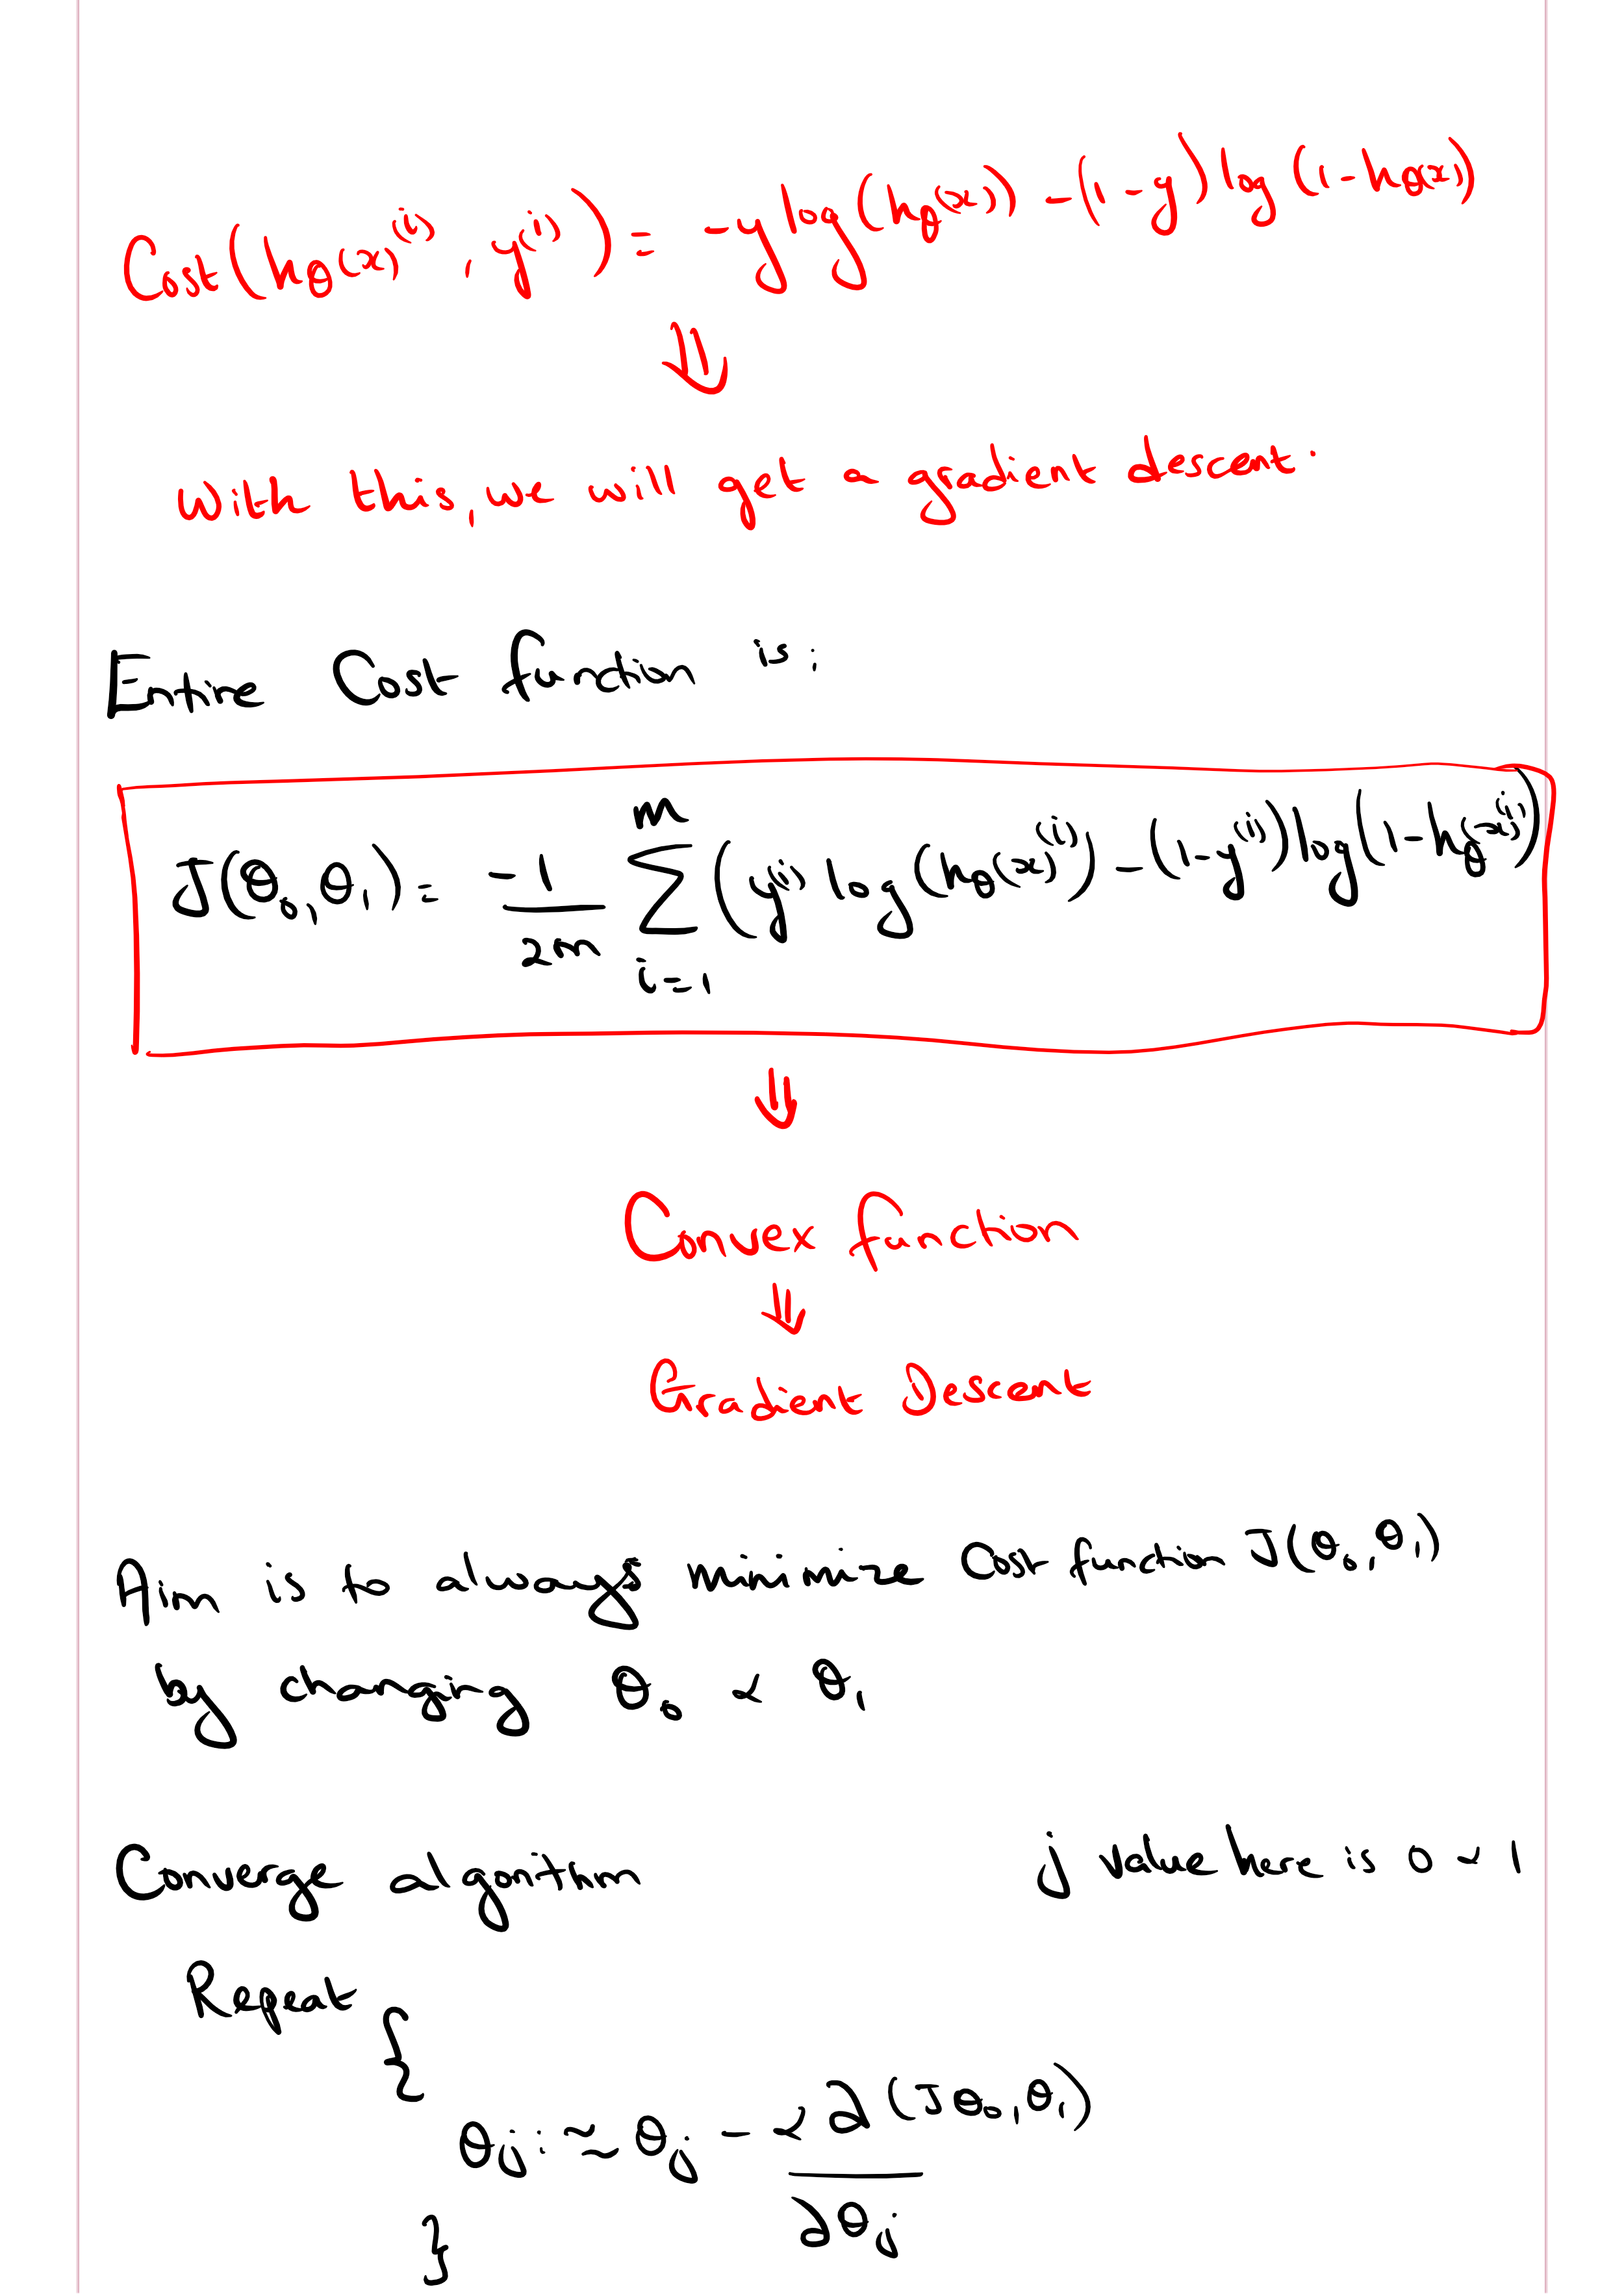 Cost(hθ(x)^(i), y^(i)) = -y log(hθ(x)) - (1-y) log(1-hθ(x))
⇓
With this, we will get a gradient descent.
Entire Cost function is:
J(θ₀,θ₁) = -1/2m Σ_{i=1}^{m} (y^(i) log(hθ(x)^(i)) - (1-y^(i)) log(1-hθ(x)^(i))
⇓
Convex function
⇓
Gradient Descent
Aim is to always minimize Cost function J(θ₀,θ₁)
by changing θ₀ & θ₁
Converge algorithm j value here is 0 & 1
Repeat
{
θj :≈ θj - α ∂(Jθ₀,θ₁)/∂θj
}